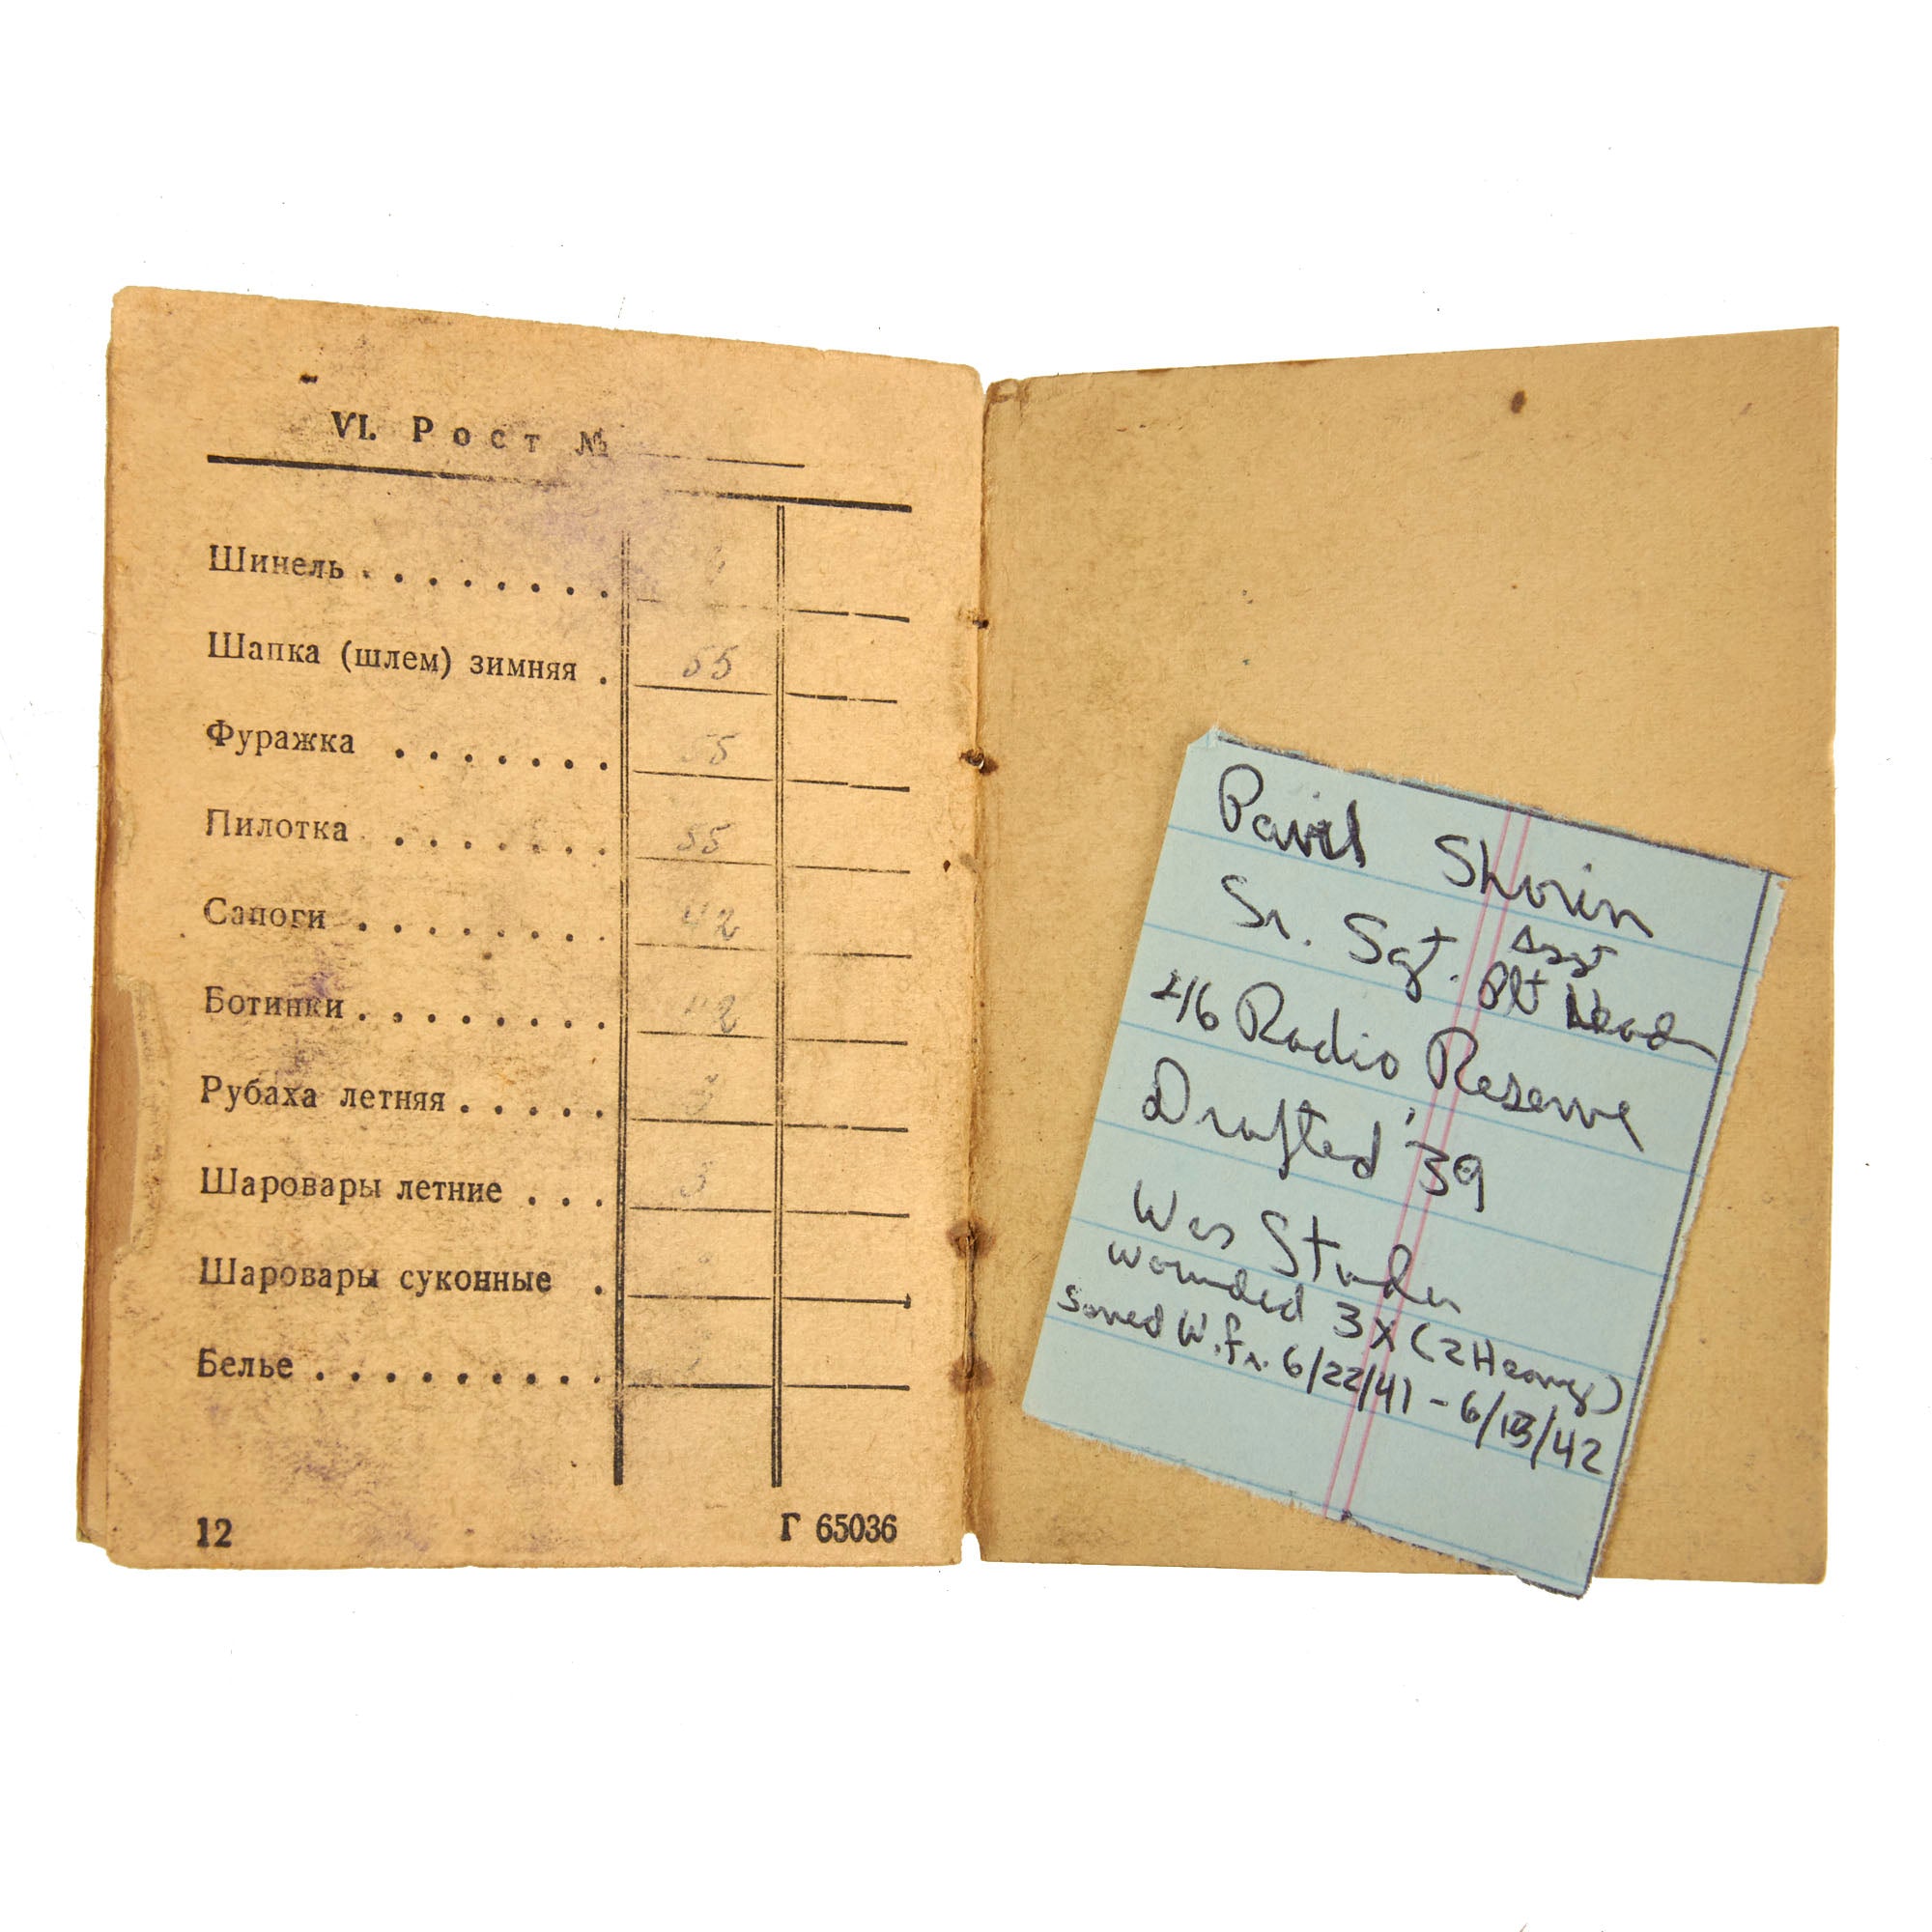 VI. Рост №
Шинель . . . . . . . .
Шапка (шлем) зимняя . 55
Фуражка . . . . . . . 55
Пилотка . . . . . . . 55
Сапоги . . . . . . . . 42
Ботинки . . . . . . . . 42
Рубаха летняя . . . . . 3
Шаровары летние . . . 3
Шаровары суконные .
Белье . . . . . . . . .
12 Г 65036
Pavel Shorin
Sr. Sgt. Asst
Plt Head
46 Radio Reserve
Drafted '39
Was Studen
wounded 3X (2 Heavy)
Served W. fr. 6/22/41 - 6/13/42